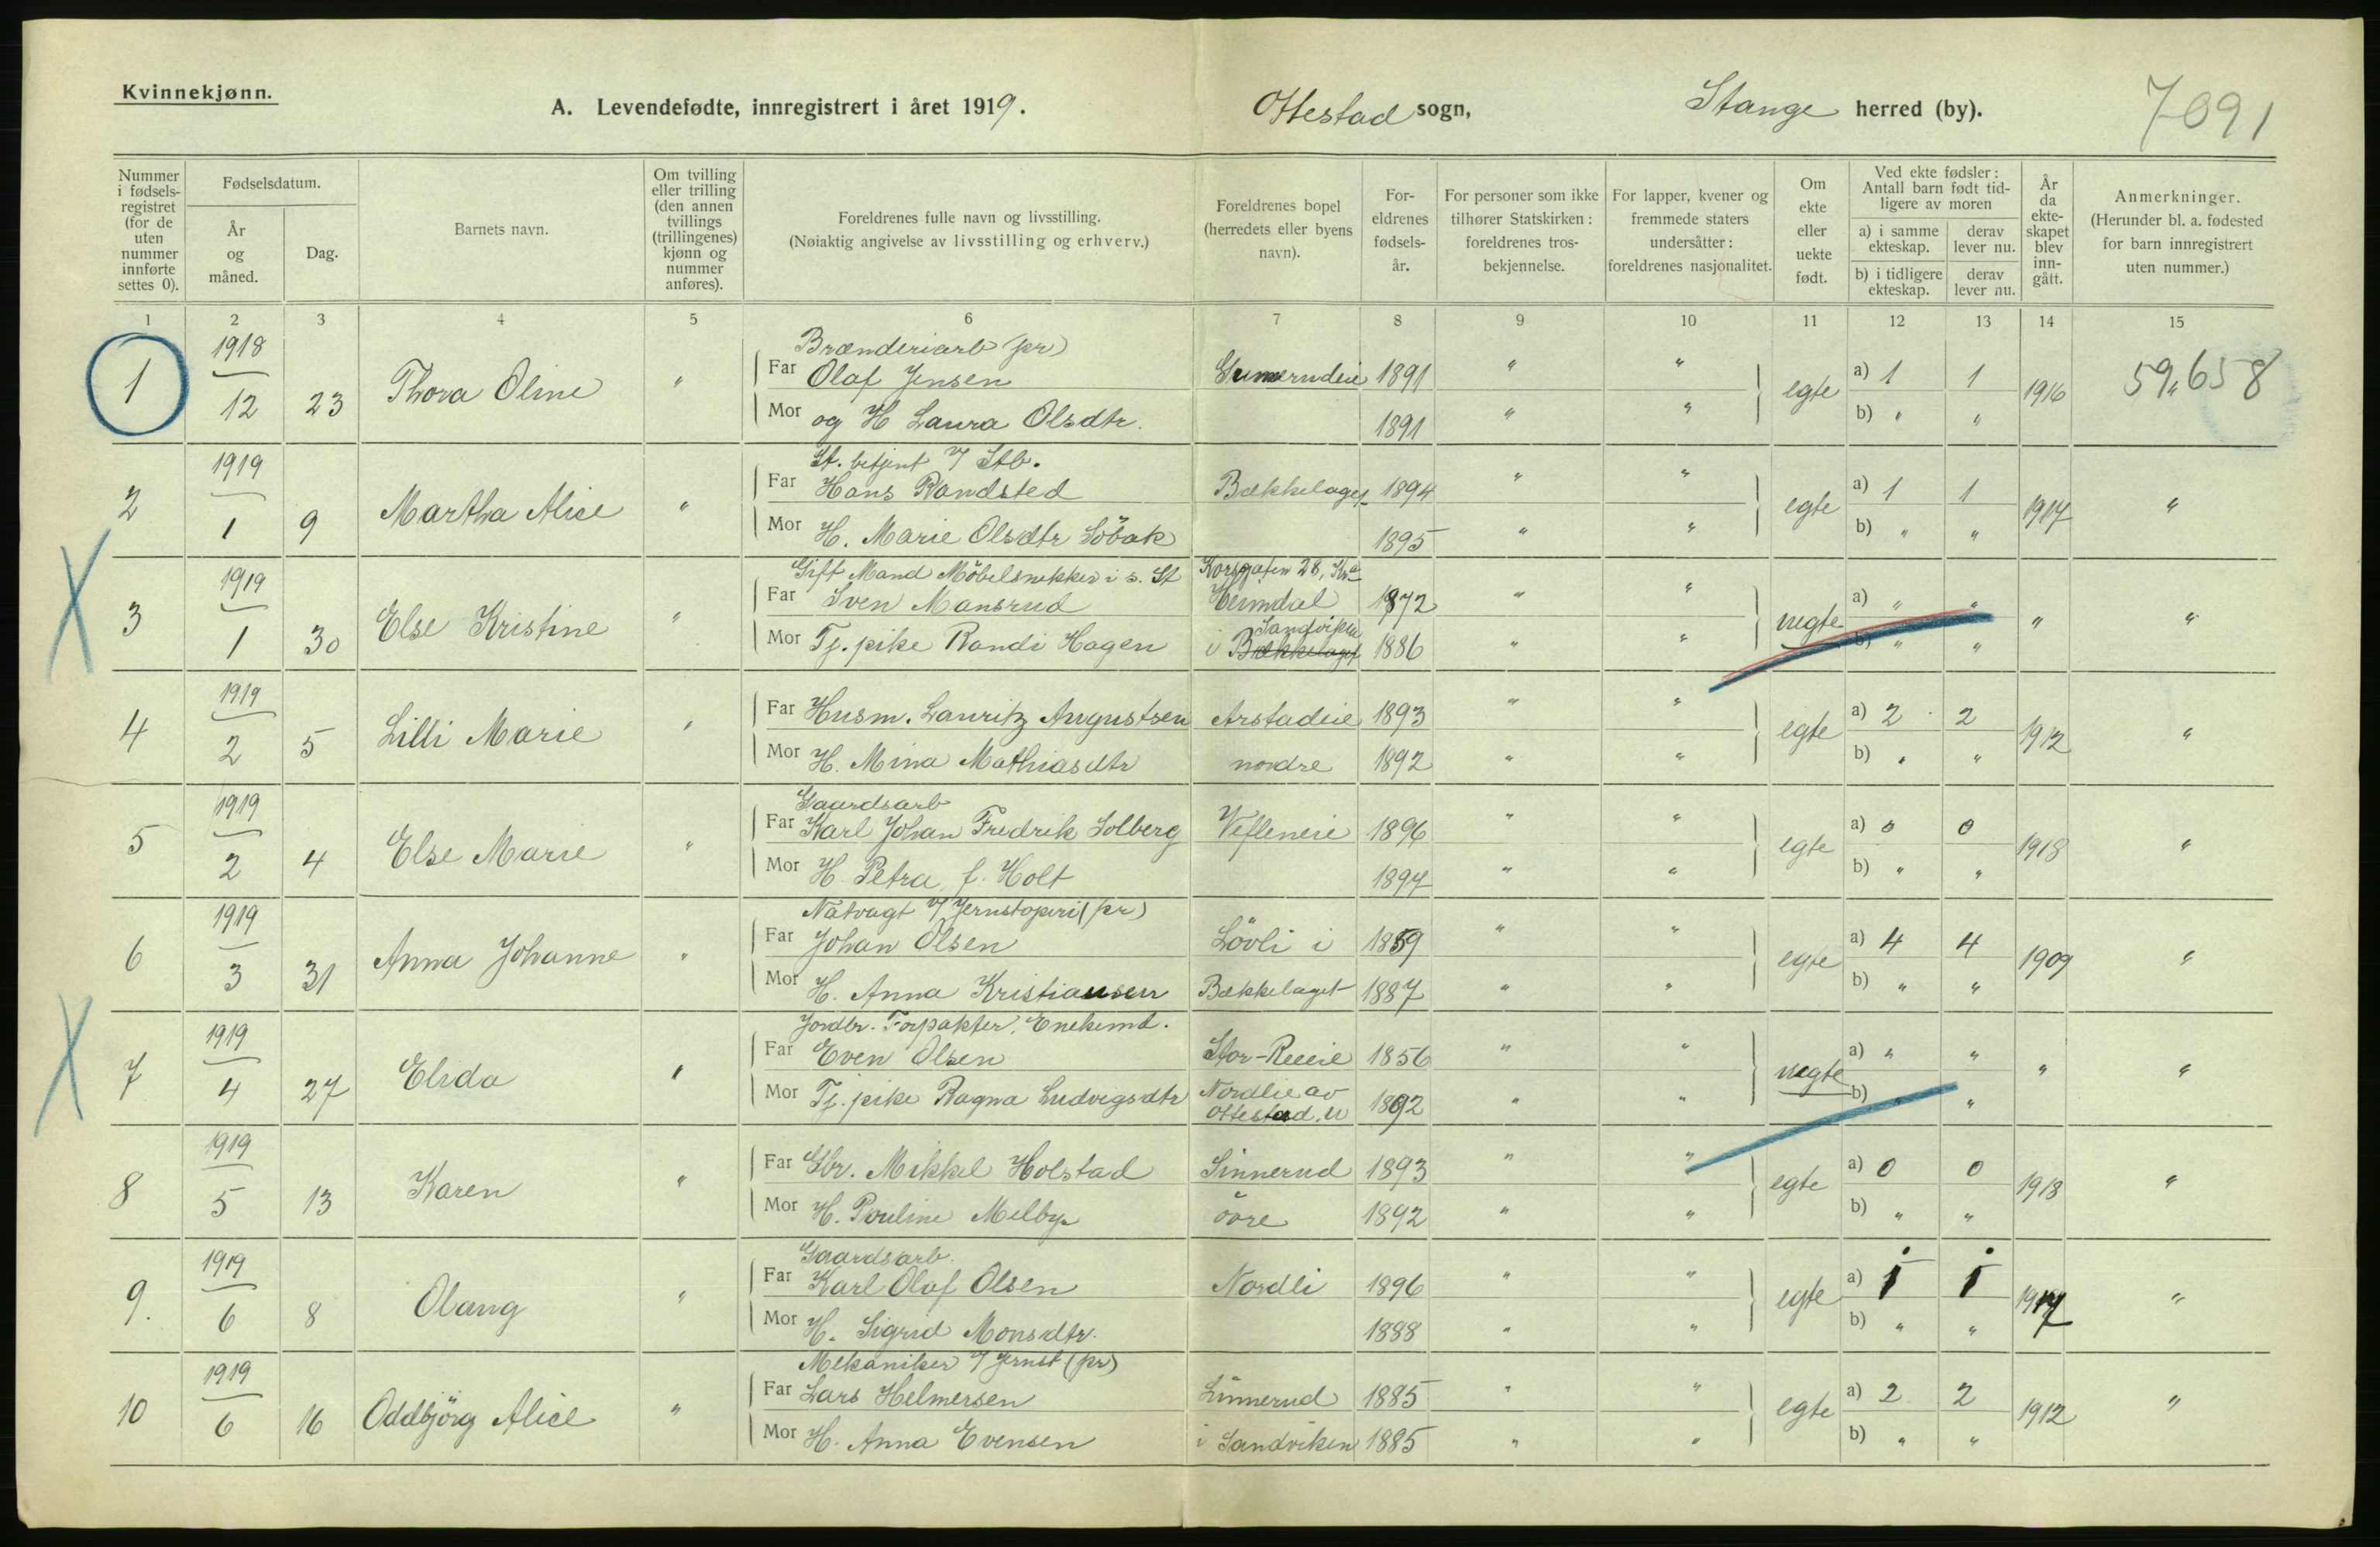 Kvinnekjønn.
A. Levendefødte, innregistrert i året 1919. Ottestad sogn, Stange herred (by). 7091
Nummer i fødselsregistret (for de uten nummer innførte settes 0).
Fødselsdatum.
År og måned.
Dag.
Barnets navn.
Om tvilling eller trilling (den annen tvillings (trillingenes) kjønn og nummer anføres).
Foreldrenes fulle navn og livsstilling.
(Nøiaktig angivelse av livsstilling og erhverv.)
Foreldrenes bopel (herredets eller byens navn).
Foreldrenes fødselsår.
For personer som ikke tilhører Statskirken: foreldrenes trosbekjennelse.
For lapper, kvener og fremmede staters undersåtter: foreldrenes nasjonalitet.
Om ekte eller uekte født.
Ved ekte fødsler: Antall barn født tidligere av moren
a) i samme ekteskap. derav lever nu.
b) i tidligere ekteskap. derav lever nu.
År da ekteskapet blev inngått.
Anmerkninger.
(Herunder bl. a. fødested for barn innregistrert uten nummer.)
1 2 3 4 5 6 7 8 9 10 11 12 13 14 15
1918 Brænderiarb (pr)
Far Olaf Jensen 1891 " " a) 1 1
1 12 23 Thora Oline " egte 1916 59,658
Mor og H Laura Olsdtr. 1891 " " b) " "
1919 St. betjent v/ Stb.
Far Hans Randsted Bækkelaget 1894 " " a) 1 1
2 1 9 Martha Alice " egte 1917 "
Mor H. Marie Olsdtr Söbak 1895 " " b) " "
1919 Gift Mand Möbelsnekker i s. St Korsgaten 28, Kra
Far Sven Mansrud Heimdal 1872 " " a) " "
3 1 30 Else Kristine " uegte " "
Sandviken
Mor Tj. pike Randi Hagen i Bækkelaget 1886 " " b) " "
1919
Far Husm. Lauritz Augustsen Arstadeie 1893 " " a) 2 2
4 2 5 Lilli Marie " egte 1912 "
Mor H. Mina Mathiasdtr nordre 1892 " " b) " "
1919 Gaardsarb
Far Karl Johan Fredrik Solberg 1896 " " a) 0 0
5 2 4 Else Marie " egte 1918 "
Mor H. Petra f. Holt 1894 " " b) " "
1919 Natvagt v/ Jernstöperi (pr)
Far Johan Olsen Lövli i 1889 " " a) 4 4
6 3 31 Anna Johanne " egte 1909 "
Mor H. Anna Kristiansen Bækkelaget 1887 " " b) " "
1919 Jordbr. Forpakter. Enekemd.
Far Even Olsen 1856 " " a) " "
7 4 27 Elida " uegte " "
Mor Tj. pike Ragna Ludvigsdtr Nordlie av Ottestad. 1892 " " b) " "
1919
Far Gbr. Mikkel Holstad Sinnerud 1893 " " a) 0 0
8 5 13 Karen " egte 1918 "
Mor H. Pouline Melbye övre 1892 " " b) " "
1919 Gaardsarb.
Far Karl Olaf Olsen Nordli 1896 " " a) 1 1
9. 6 8 Olaug " egte 1917 "
Mor H. Sigrid Monsdtr. 1888 " " b) " "
1919 Mekaniker v/ Jernst (pr)
Far Lars Helmersen Linnerud 1885 " " a) 2 2
10 6 16 Oddbjörg Alice " egte 1912 "
Mor H. Anna Evensen i Sandviken 1885 " " b) " "